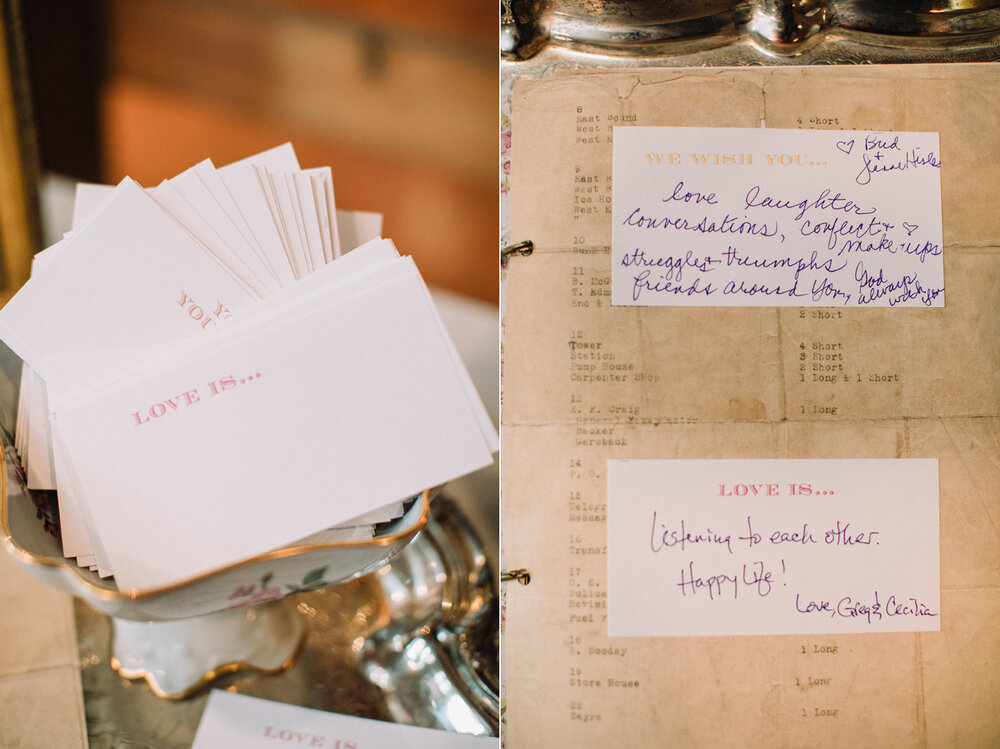 YOU
YOU
LOVE IS...
LOVE IS
8
East Bound 4 Short
West
West
WE WISH YOU...
♡ Bud
+
love laughter
conversations, conflict + ♡
make-ups
struggles + triumphs
friends around you, God
always
watch you
9
East
West
Ice Ho
West
"
10
11
S. McG
T. Edm
End &
2 Short
12
Tower 4 Short
Station 3 Short
Pump House 2 Short
Carpenter Shop 1 Long & 1 Short
13
E. F. Craig 1 Long
General
Hacker
Gersback
14
P. O.
15
Telegr
Messag
16
Transf
17
Police
Revisi
Fuel
LOVE IS...
Listening to each other.
Happy Life!
Love, Greg & Cecilia
18
Doodey 1 Long
19
Store House 1 Long
22
Sayre 1 Long